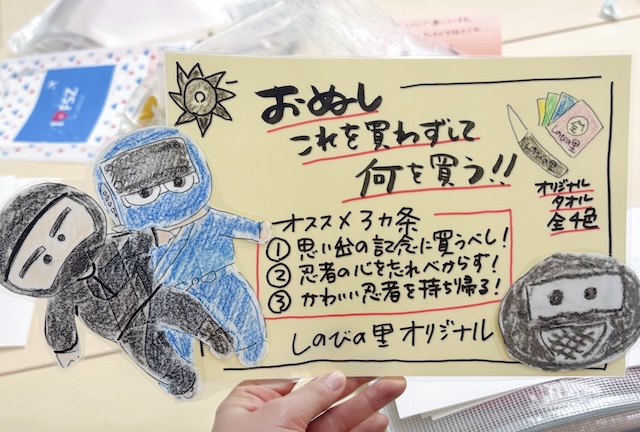 おぬし
これを買わずして
何を買う!!
しのびの里
オリジナル
タオル
全4色
オススメ3カ条
① 思い出の記念に買うべし!
② 忍者の心をたれべからず!
③ かわいい忍者を持ち帰る!
しのびの里 オリジナル